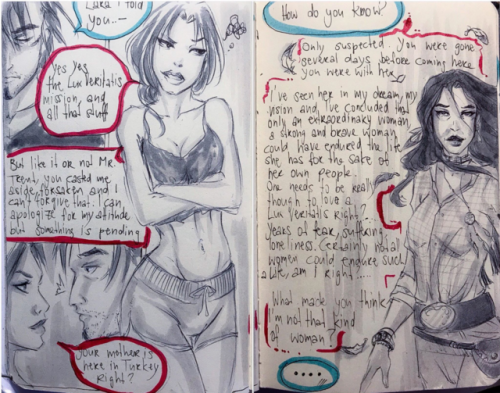 Lara I told
you...
Yes yes
the Lux Veritatis
mission, and
all that stuff
But like it or not Mr.
Trent, you casted me
aside, forsaken and I
can't forgive that. I can
apologize for my attitude
but something is pending
Your mother is
here in Turkey
Right?
How do you know?
Only suspected. You were gone
several days before coming here
you were with her
I've seen her in my dream, my
vision and, I've concluded that
only an extraordinary woman,
a strong and brave woman
could have endured the life
she has for the sake of
her own people.
One needs to be really
though to love a
Lux Veritatis right?
Years of fear, suffering
loneliness. Certainly not all
women could endure such
a life, am I right.....
What made you think
I'm not that kind
of woman?
....